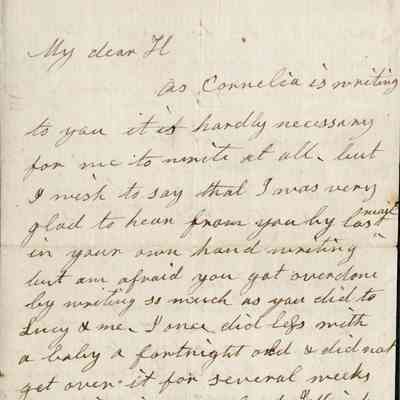 My dear H
as Cornelia is writing
to you it is hardly necessary
for me to write at all. but
I wish to say that I was very
glad to hear from you by last mail
in your own hand writing
but am afraid you got overdone
by writing so much as you did to
Lucy & me. I once did less with
a baby a fortnight old & did not
get over it for several weeks